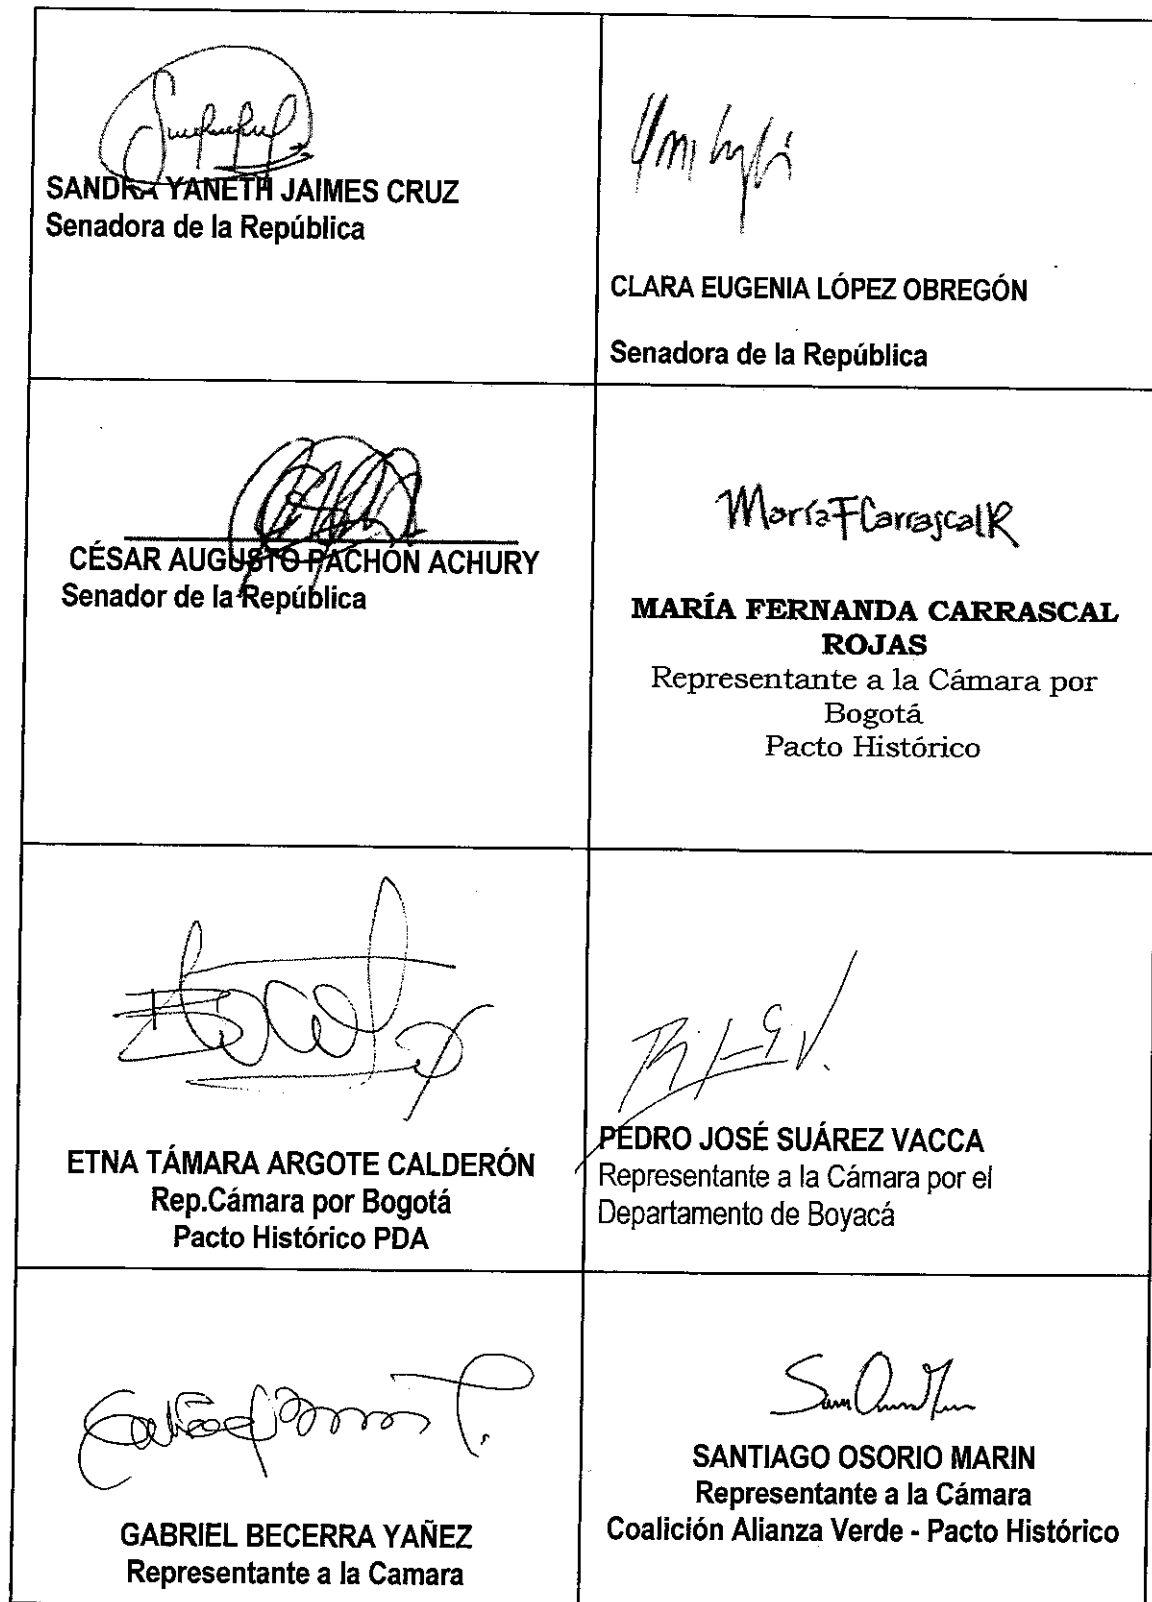 SANDRA YANETH JAIMES CRUZ
Senadora de la República
CLARA EUGENIA LÓPEZ OBREGÓN
Senadora de la República
CÉSAR AUGUSTO PACHÓN ACHURY
Senador de la República
MaríaFCarrascalR
MARÍA FERNANDA CARRASCAL
ROJAS
Representante a la Cámara por
Bogotá
Pacto Histórico
ETNA TÁMARA ARGOTE CALDERÓN
Rep.Cámara por Bogotá
Pacto Histórico PDA
PEDRO JOSÉ SUÁREZ VACCA
Representante a la Cámara por el
Departamento de Boyacá
GABRIEL BECERRA YAÑEZ
Representante a la Camara
SANTIAGO OSORIO MARIN
Representante a la Cámara
Coalición Alianza Verde - Pacto Histórico